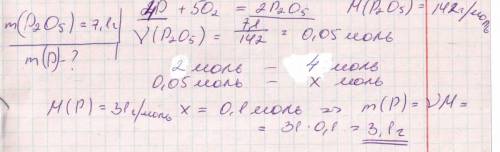 m(P₂O₅) = 7,1г
m(P) - ?
4P + 5O₂ = 2P₂O₅
M(P₂O₅) = 142 г/моль
ν(P₂O₅) = 7,1/142 = 0,05 моль
2 моль - 4 моль
0,05 моль - x моль
M(P) = 31 г/моль x = 0,1 моль => m(P) = νM =
= 31 · 0,1 = 3,1 г